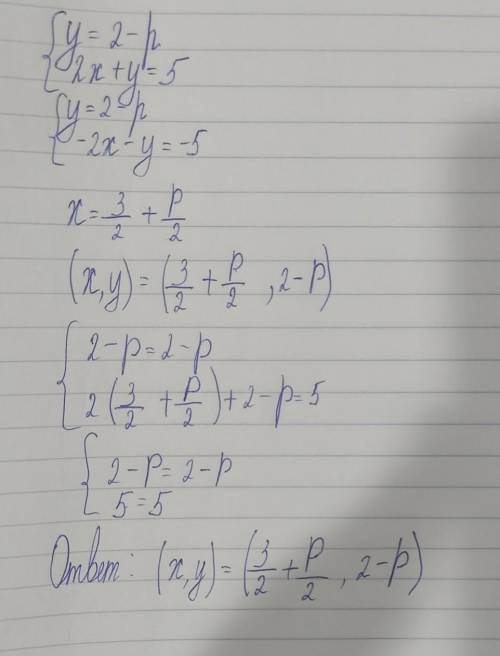 {y = 2 - p
2x + y = 5
{y = 2 - p
-2x - y = -5
x = 3/2 + p/2
(x, y) = (3/2 + p/2 , 2 - p)
{2 - p = 2 - p
2 (3/2 + p/2) + 2 - p = 5
{2 - p = 2 - p
5 = 5
Ответ: (x, y) = (3/2 + p/2 , 2 - p)